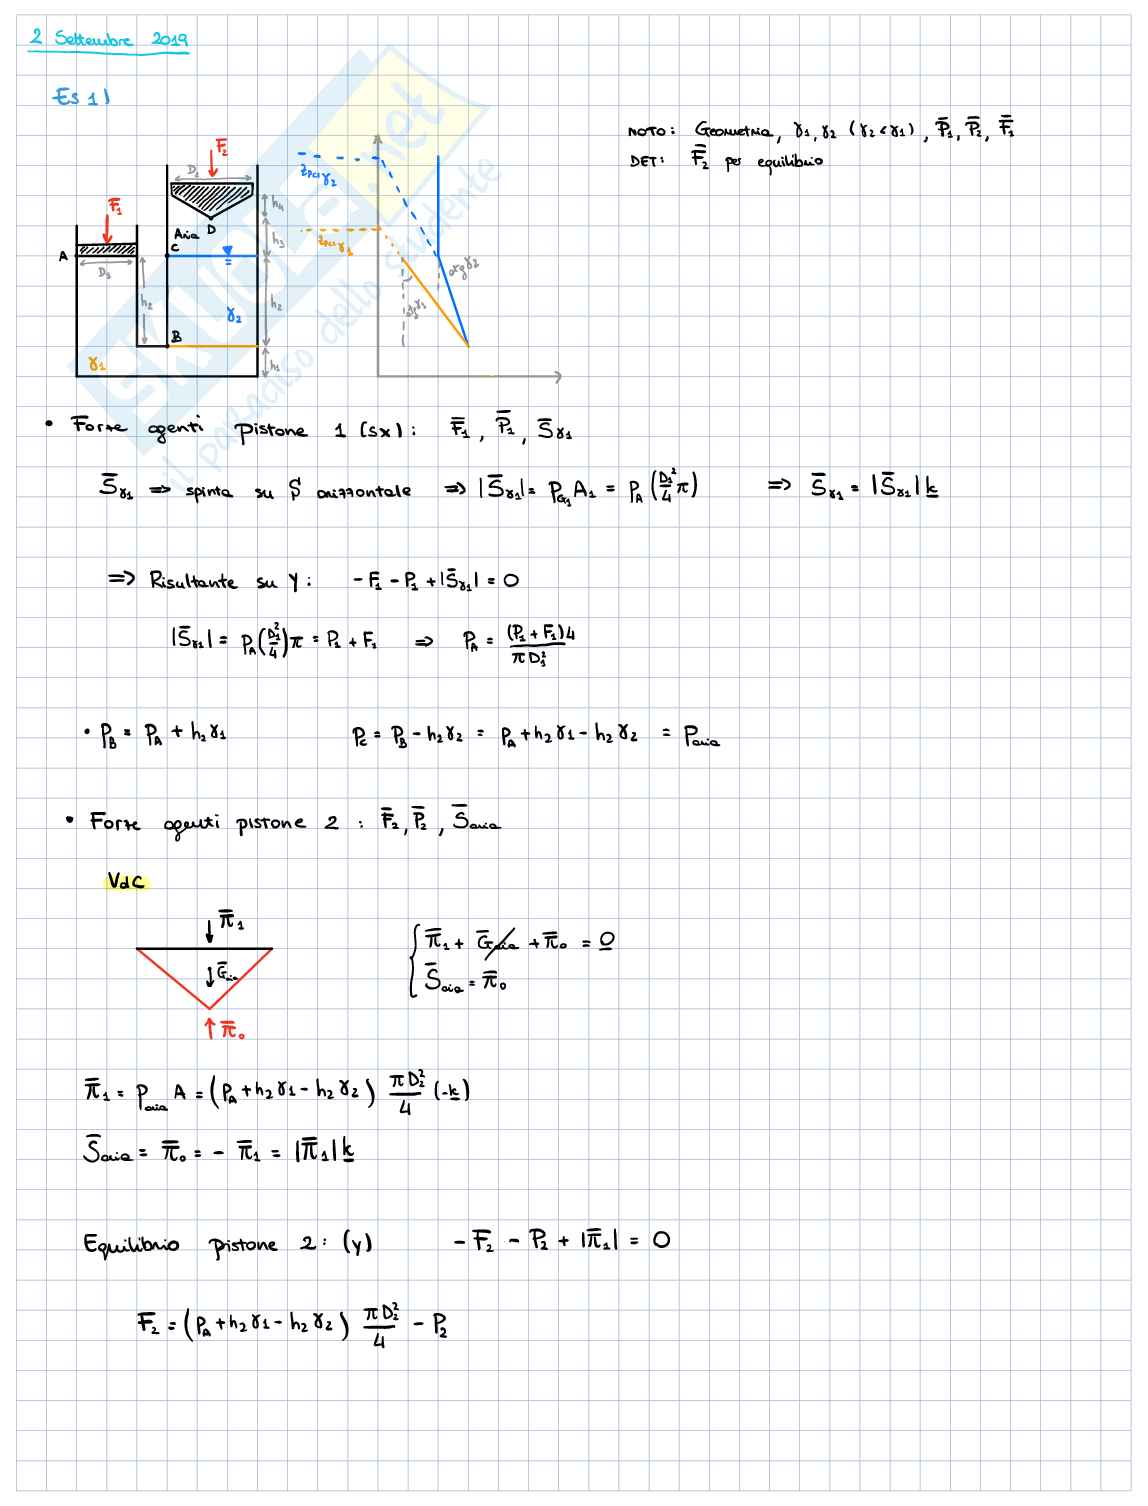 2 Settembre 2019
Es 1)
NOTO: Geometria, γ1, γ2 (γ2<γ1), P̄1, P̄2, F̄1
DET: F̄2 per equilibrio
F2
D2
F1
h4
h3
Aria
D
C
A
D1
h2
h2
γ2
B
h1
γ1
zpciγ2
zpciγ1
atgγ2
atgγ1
SKUOLA.net
il paradiso dello studente
• Forze agenti pistone 1 (sx): F̄1, P̄1, S̄γ1
S̄γ1 => spinta su S orizzontale => |S̄γ1| = pG1 A1 = pA (D1²/4 π) => S̄γ1 = |S̄γ1| k
=> Risultante su y: -F1 - P1 + |S̄γ1| = 0
|S̄γ1| = pA (D1²/4) π = P1 + F1 => pA = (P1 + F1)4 / πD1²
• pB = pA + h2γ1 pC = pB - h2γ2 = pA + h2γ1 - h2γ2 = Paria
• Forze agenti pistone 2: F̄2, P̄2, S̄aria
VdC
π̄1
Ḡaria
π̄0
π̄1 + Ḡaria + π̄0 = 0
S̄aria = π̄0
π̄1 = paria A = (pA + h2γ1 - h2γ2) πD2²/4 (-k)
S̄aria = π̄0 = - π̄1 = |π̄1| k
Equilibrio pistone 2: (y) -F2 - P2 + |π̄1| = 0
F2 = (pA + h2γ1 - h2γ2) πD2²/4 - P2